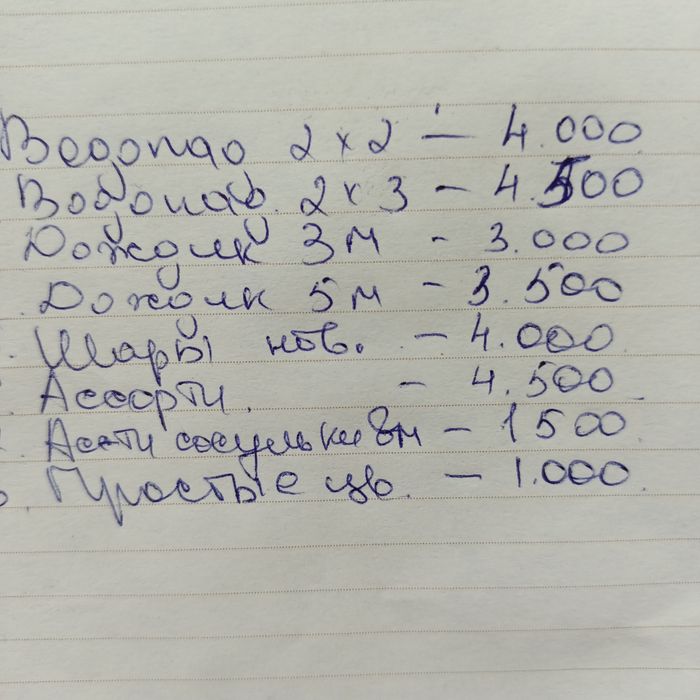 Водопад 2 х 2 — 4.000
Водопад. 2 х 3 — 4.500
Дождик 3 м - 3.000
Дождик 5 м - 3.500
Шары нов. — 4.000
Ассорти. - 4.500
сосульки 8м — 1500
Простые цв. — 1.000